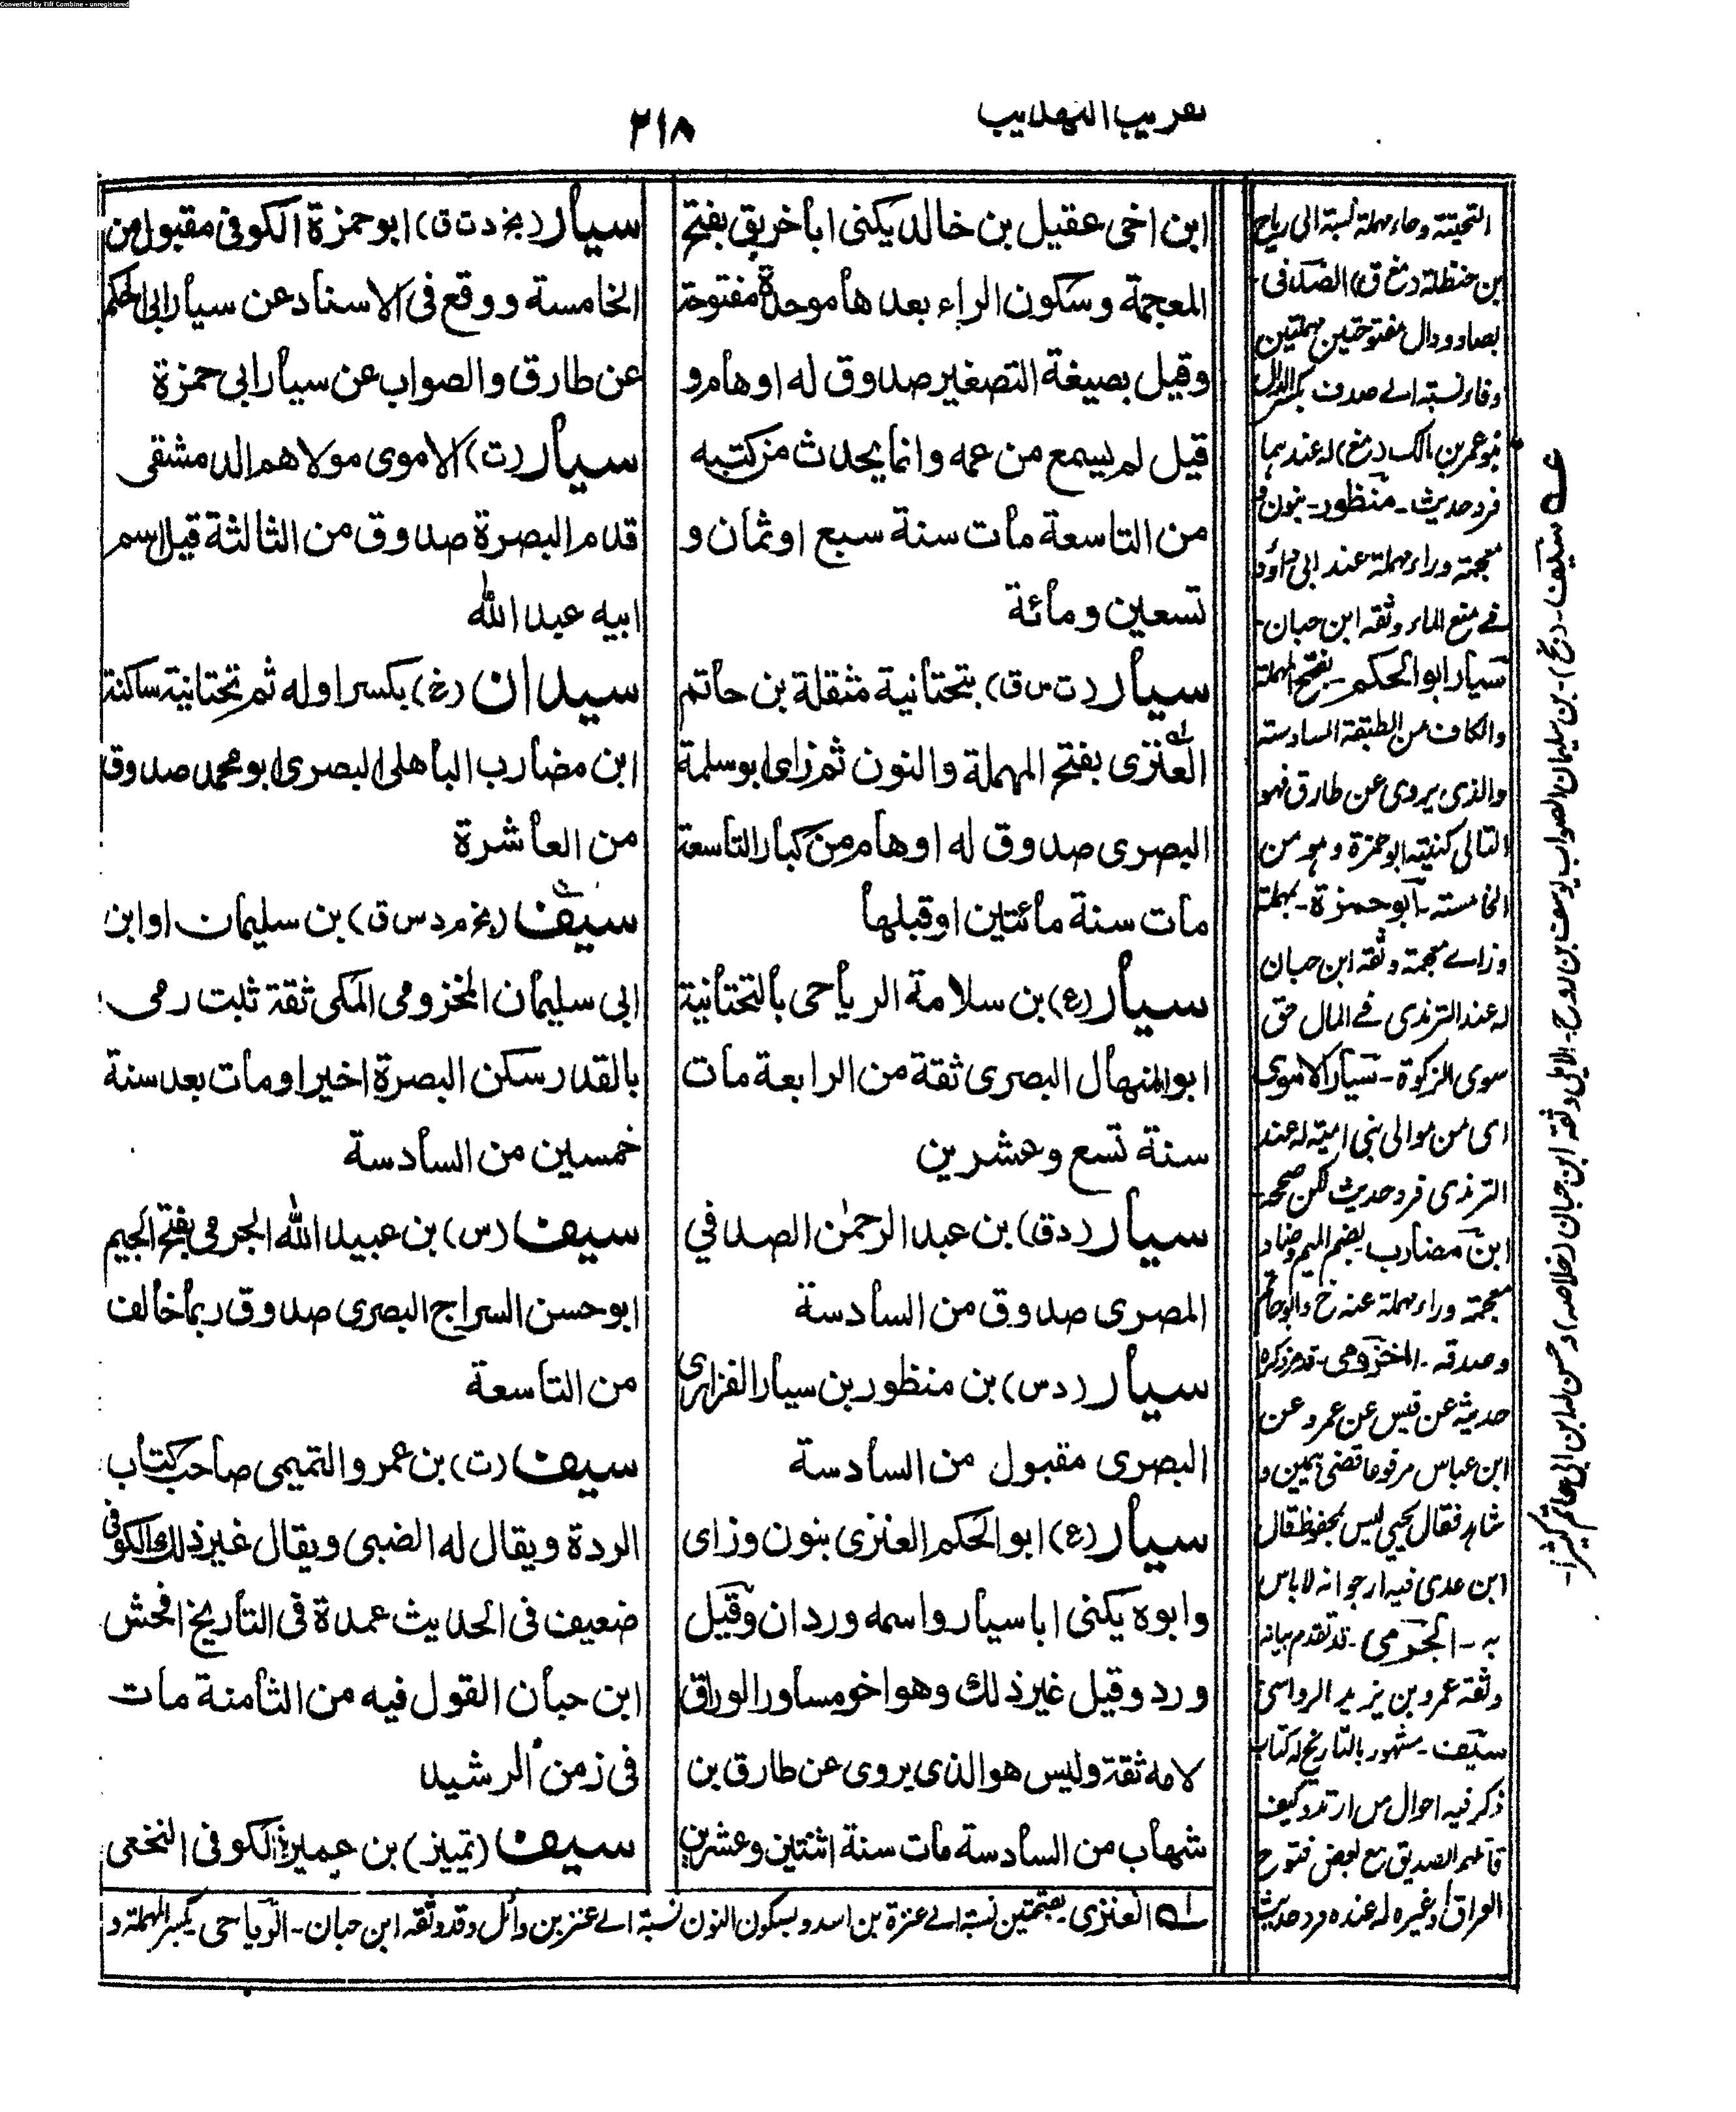 Converted by Tiff Combine - unregistered
تقريب التهذيب
٢١٨
ابن اخى عقيل بن خالد يكنى ابا خريق بفتح
المعجمة وسكون الراء بعدها موحدة مفتوحة
وقيل بصيغة التصغير صدوق له اوهام و
قيل لم يسمع من عمه وانما يحدث من كتبه
من التاسعة مات سنة سبع او ثمان و
تسعين ومائة
سيار (ت س ق) بتحتانية مثقلة بن حاتم
العنزى بفتح المهملة والنون ثم زاى ابو سلمة
البصرى صدوق له اوهام من كبار التاسعة
مات سنة مائتين او قبلها
سيار (ع) بن سلامة الرياحى بالتحتانية
ابو المنهال البصرى ثقة من الرابعة مات
سنة تسع وعشرين
سيار (د ق) بن عبد الرحمٰن الصدفي
المصرى صدوق من السادسة
سيار (د س) بن منظور بن سيار الفزارى
البصرى مقبول من السادسة
سيار (ع) ابو الحكم العنزى بنون وزاى
وابوه يكنى ابا سيار واسمه وردان وقيل
ورد وقيل غير ذلك وهو اخو مساور الوراق
لامه ثقة وليس هو الذى يروى عن طارق بن
شهاب من السادسة مات سنة اثنتين وعشرين
سيار (بخ د ت ق) ابو حمزة الكوفى مقبول من
الخامسة ووقع فى الاسناد عن سيار ابى الحكم
عن طارق والصواب عن سيار ابى حمزة
سيار (ت) الاموى مولاهم الدمشقى
قدم البصرة صدوق من الثالثة قيل اسم
ابيه عبد الله
سيدان (خ) بكسر اوله ثم تحتانية ساكنة
ابن مضارب الباهلى البصرى ابو محمد صدوق
من العاشرة
سيف (خ م د س ق) بن سليمان او ابن
ابى سليمان المخزومى المكى ثقة ثبت رمى
بالقدر سكن البصرة اخيرا ومات بعد سنة
خمسين من السادسة
سيف (س) بن عبيد الله الجرمى بفتح الجيم
ابو حسن السراج البصرى صدوق ربما خالف
من التاسعة
سيف (ت) بن عمرو التميمى صاحب كتاب
الردة ويقال له الضبى ويقال غير ذلك الكوفى
ضعيف فى الحديث عمدة فى التاريخ افحش
ابن حبان القول فيه من الثامنة مات
فى زمن الرشيد
سيف (تمييز) بن عميرة الكوفى النخعى
له العنزى بفتحتين نسبة الے عنزة بن اسد وبسكون النون نسبة الے عنز بن وائل وقد وثقه ابن حبان - الرياحى بكسر المهملة و
التحتية وحاء مهملة نسبة الى رياح
بن حنظلة الصدفى -
بصاد ودال مفتوحتين مهملتين
وفاء نسبة الے صدف بكسر الدال
بن مالك له عندهما
فرد حديث - منظور - بنون و
معجمة وراء مهملة عند ابى داؤد
فے منع الماء وثقه ابن حبان -
سيار ابو الحكم - بفتح المهملة
والكاف من الطبقة السادسة
والذى يروى عن طارق فهو
التالى كنيته ابو حمزة وهو من
الخامسة - ابو حمزة - بمهملة
وزاے معجمة وثقه ابن حبان
له عند الترمذى فے المال حق
سوى الزكوة - سيار الاموى
اى من موالى بنى امية له عند
الترمذى فرد حديث لكن صححه -
ابن مضارب بضم الميم وضاد
معجمة وراء مهملة عنه خ وابو حاتم
وصدقه - المخزومى - قد مر ذكره
حديثه عن قيس عن عمرو عن
ابن عباس مرفوعا قضى بيمين و
شاهد فقال يحيى ليس بمحفوظ قال
ابن عدى فيه ارجو انه لا باس
به - الجرمى - قد تقدم بيانه
وثقه عمرو بن يزيد
سيف - مشهور بالتاريخ له كتاب
ذكر فيه احوال من ارتد وكيف
قاتلهم الصديق مع بعض فتوح
العراق وغيره له عنده فرد حديث
سيف - بن سليمان الصواب يوسف بن روح - الايلى وثقه ابن حبان (خلاصه) و حسن له ابن ابى حاتم كثيرا -